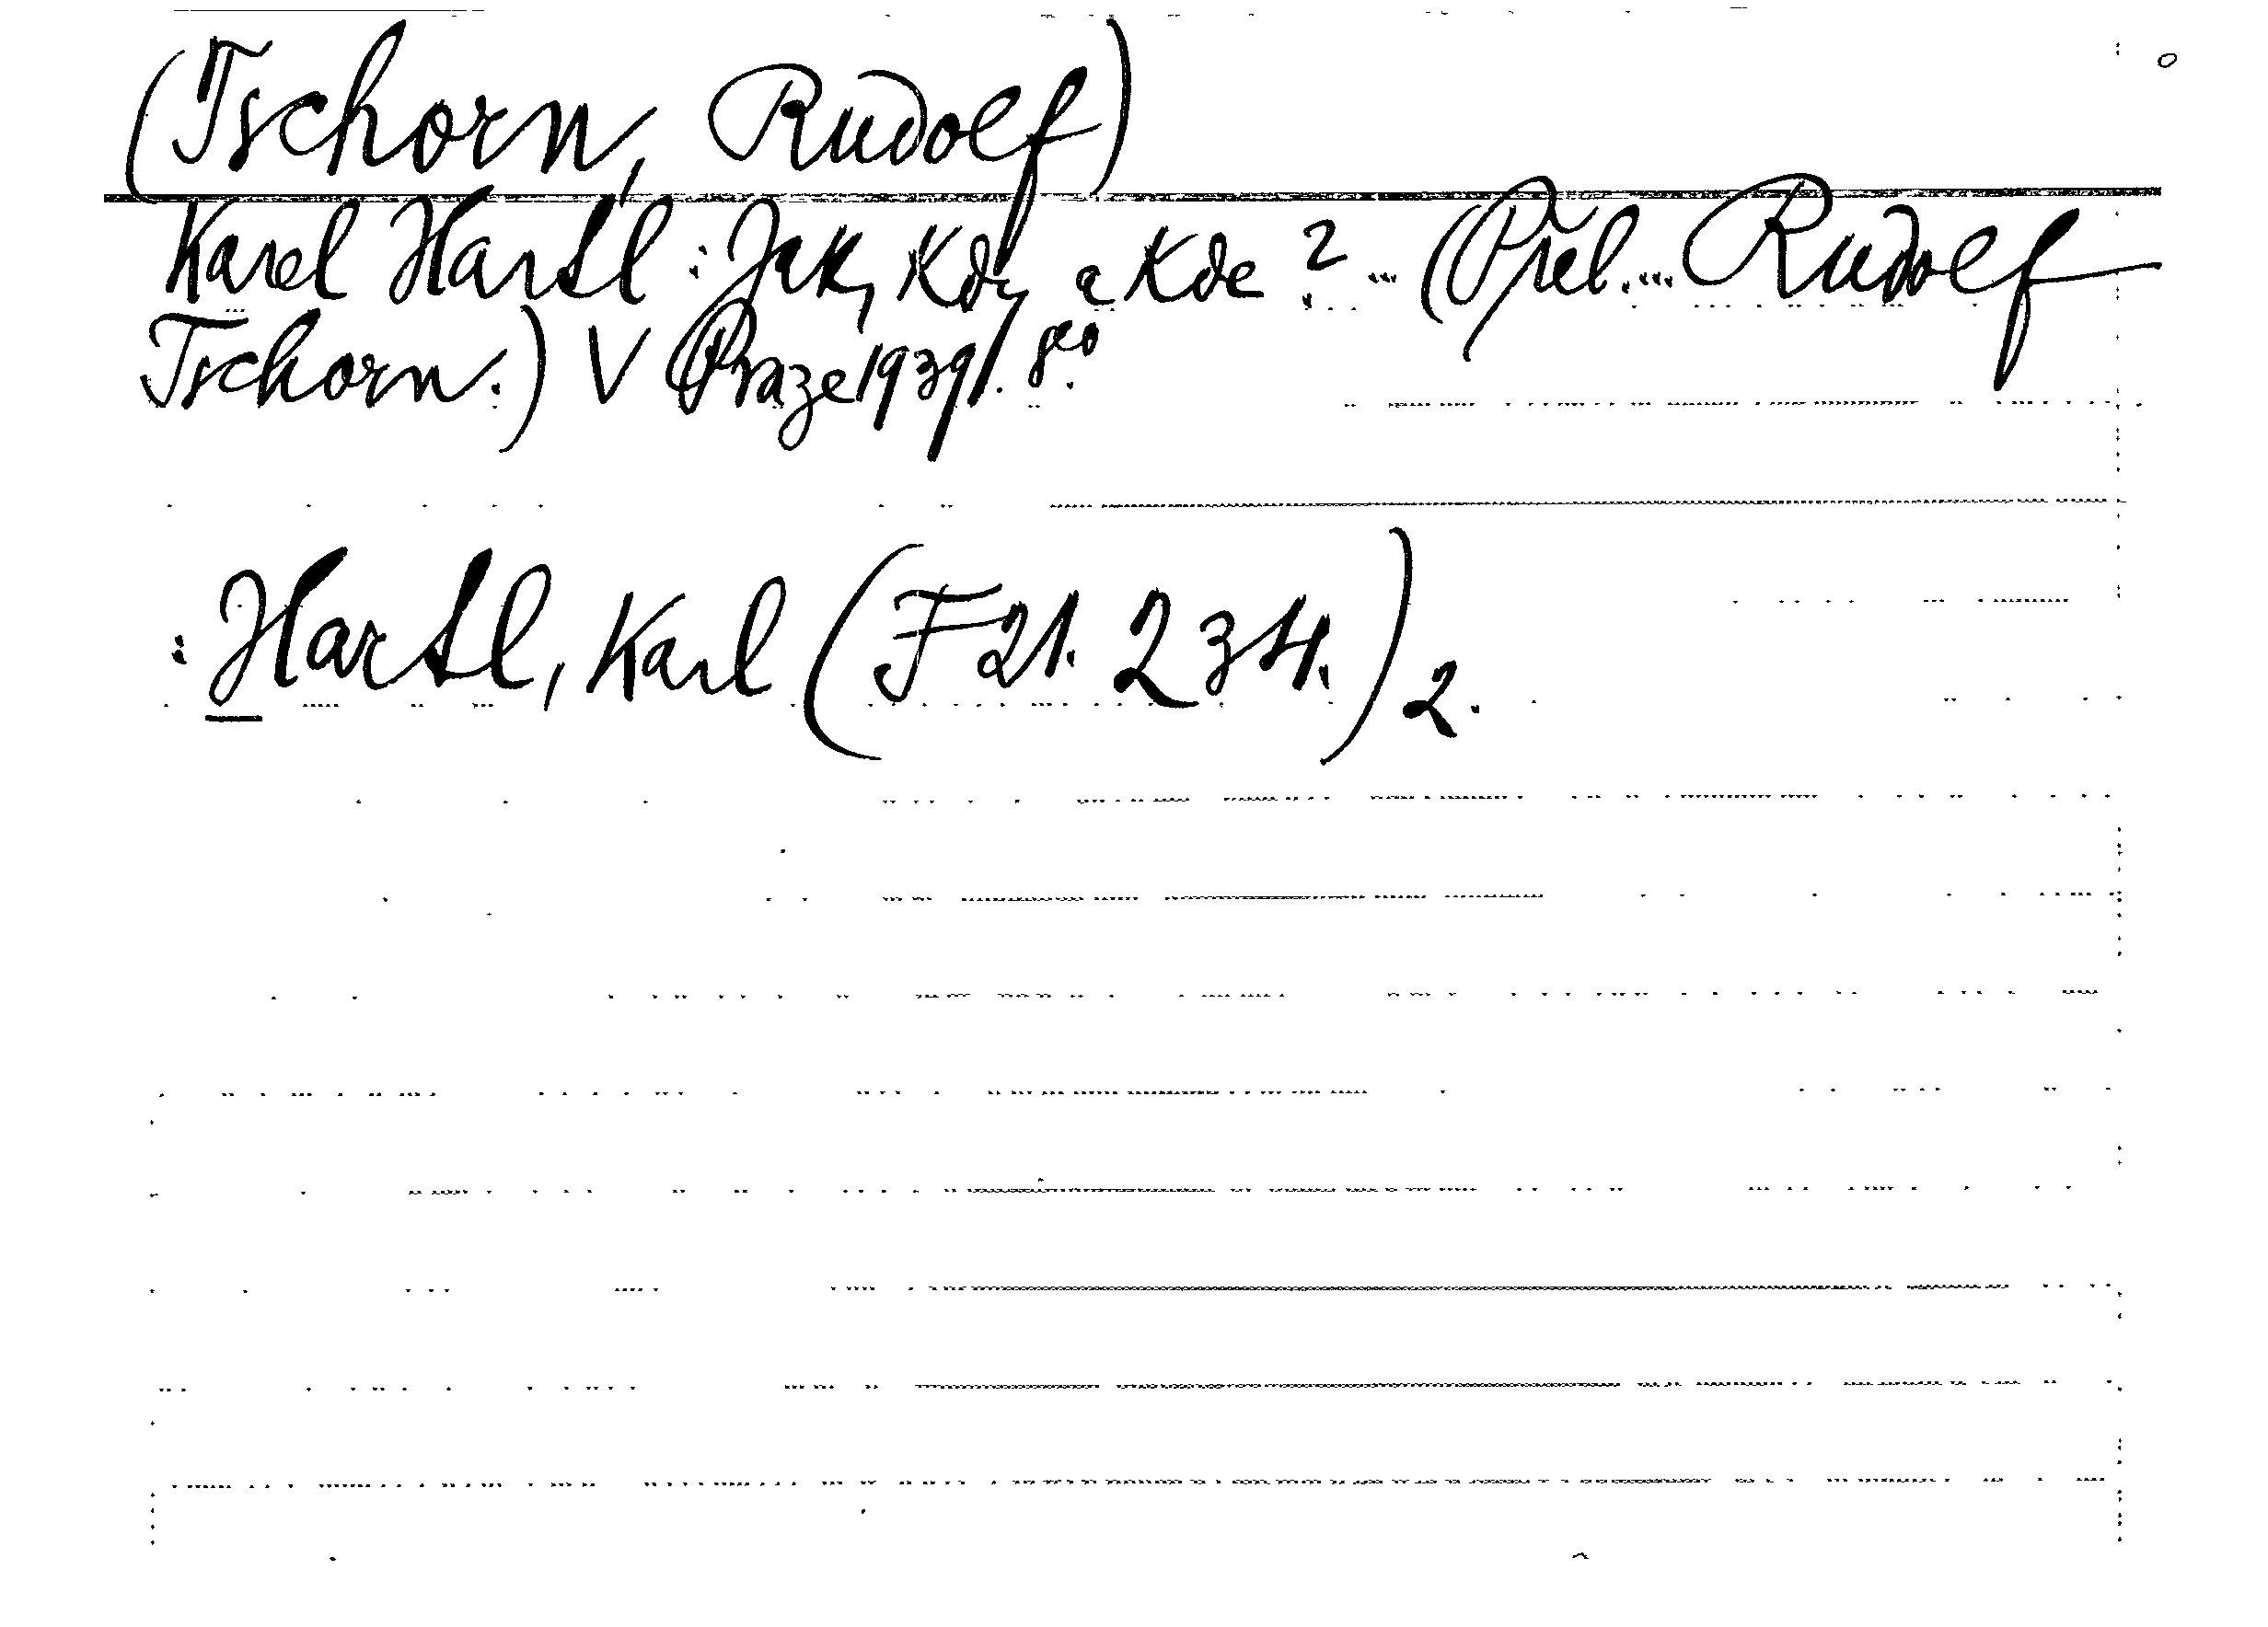 (Tschorn, Rudolf)
Karel Hartl: Jak, kdy a kde? ... (Přel. ... Rudolf
Tschorn.) V Praze 1939. 8°.
: Hartl, Karl (F 21. 234.) 2.